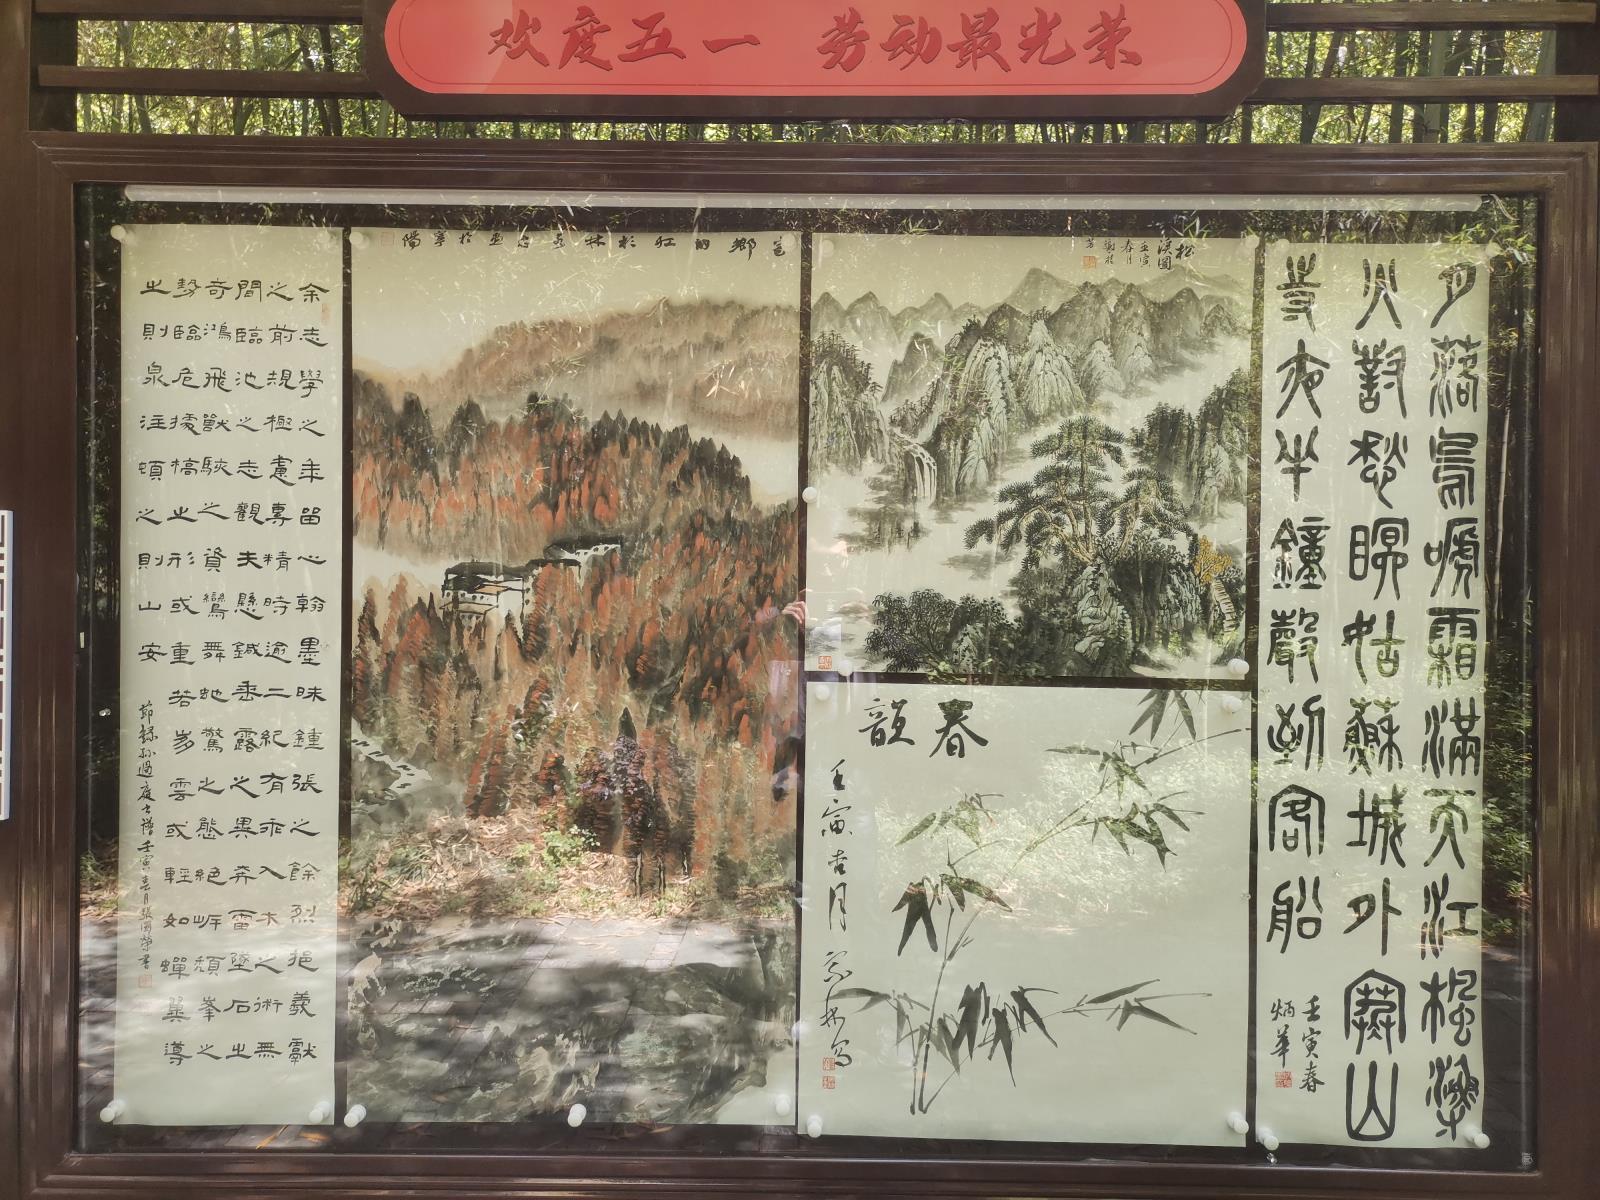 欢度五一 劳动最光荣
月落烏嗁霜滿天江楓漁
火對愁眠姑蘇城外寒山
寺夜半鐘聲到客船
壬寅春
炳華
松
溪圖
壬寅
春月
春韻
壬寅杏月
鄉的紅杉林
余志學之年留心翰墨味鍾張之餘烈挹羲獻
之前規極慮專精時逾二紀有乖入木之術無
間臨池之志觀夫懸鍼垂露之異奔雷墜石之
奇鴻飛獸駭之資鸞舞虵驚之態絕岸頹峯之
勢臨危據槁之形或重若崩雲或輕如蟬翼導
之則泉注頓之則山安
節錄孫過庭書譜壬寅春月張國榮書